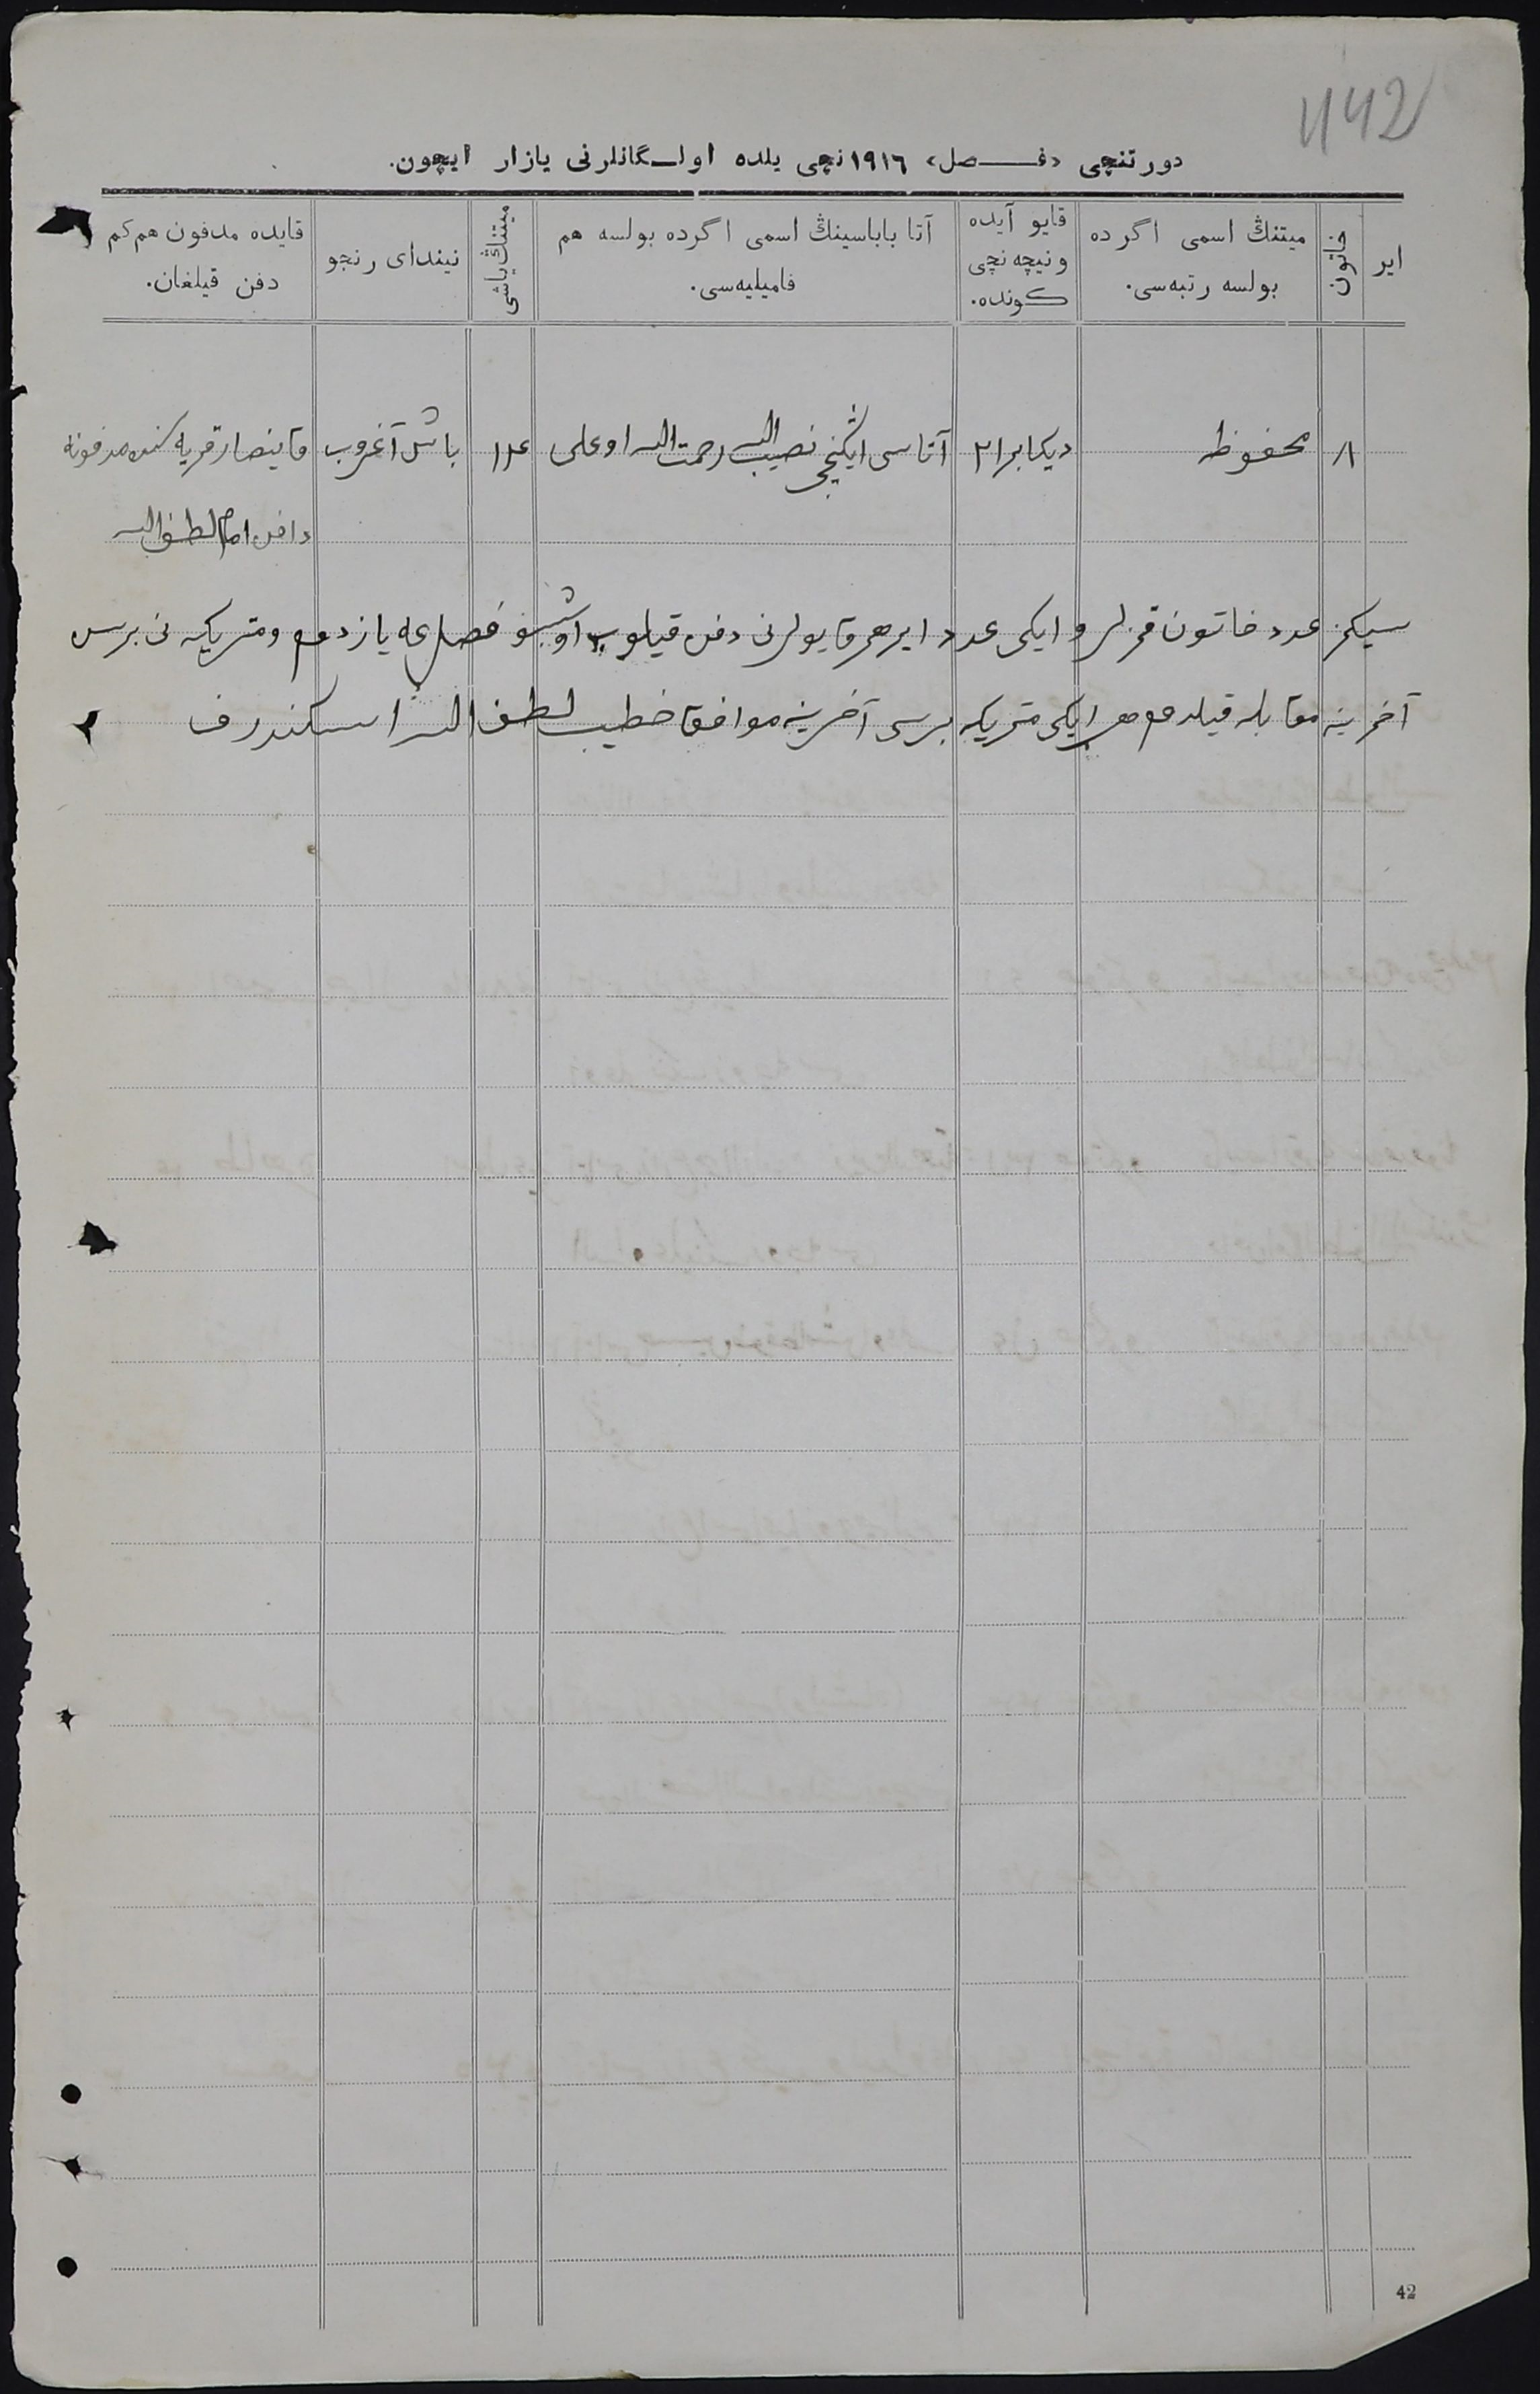 442
دورتنچی «فصل» ١٩١٦نچی یلده اولگانلرنی یازار ایچون.
ایر
خاتون
میتنڭ اسمی اگرده
بولسه رتبه‌سی.
قایو آیده
ونیچه نچی
کونده.
آتا باباسینڭ اسمی اگرده بولسه هم
فامیلیه‌سی.
میتنڭ یاشی
نیندای رنجو
قایده مدفون هم کم
دفن قیلغان.
٨ محفوظه دیکابر ٢١ آتاسی ایکنچی نصیب الله رحمت الله اوغلی باش آغروب قریه سنده مدفونه
دافن امام لطف الله
سیکز عدد خاتون قزلر و ایکی عدد ایرهم قایولرنی دفن قیلوب اوشبو فصل غه یازدم ومتریکه نی برسی
آخرینه مقابله قیلدم هم ایکی متریکه برسی آخرینه موافقا خطیب لطف الله اسکندرف
42